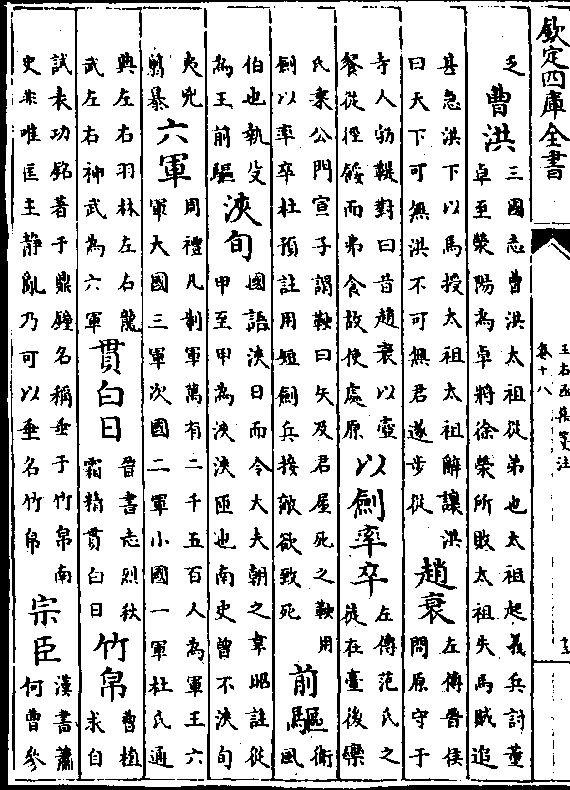 欽定四庫全書
王右丞集箋注
卷十八
乏曹洪三國志曹洪太祖從弟也太祖起義兵討董卓至滎陽為卓將徐榮所敗太祖失馬賊追
甚急洪下以馬授太祖太祖解讓洪曰天下可無洪不可無君遂步從趙衰左傳晉侯問原守于
寺人勃鞮對曰昔趙衰以壺餐從徑餒而弗食故使處原以劍率卒左傳范氏之徒在臺後欒
氏乗公門宣子謂鞅曰矢及君屋死之鞅用劍以率卒杜預註用短劍兵接敵欲致死前驅衛風
伯也執殳為王前驅浹旬國語浹日而令大夫朝之韋昭註從甲至甲為浹浹匝也南史曾不浹旬
夷兇翦暴六軍周禮凡制軍萬有二千五百人為軍王六軍大國三軍次國二軍小國一軍杜氏通
典左右羽林左右龍武左右神武為六軍貫白日晉書志烈秋霜精貫白日竹帛曹植求自
試表功銘著于鼎鐘名稱垂于竹帛南史非唯匡主静亂乃可以垂名竹帛宗臣漢書蕭何曹參